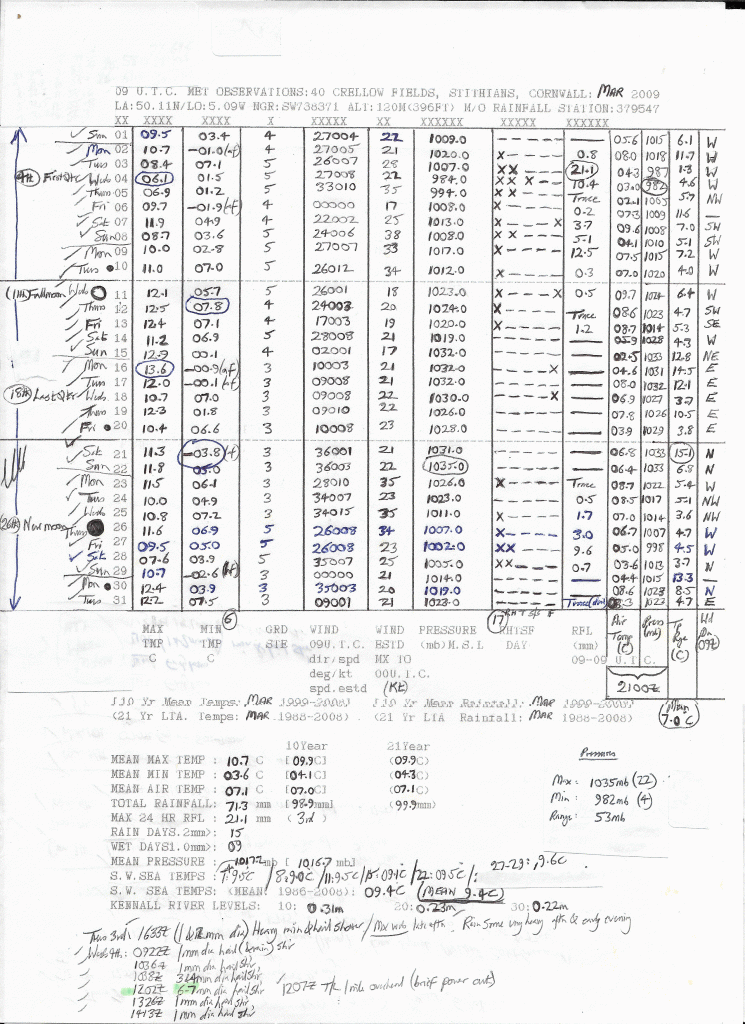 09 U.T.C. MET OBSERVATIONS:40 CRELLOW FIELDS, STITHIANS, CORNWALL: MAR 2009
LA:50.11N/LO:5.09W NGR:SW738371 ALT:120M(396FT) M/O RAINFALL STATION:379547
XX XXXX XXXX X XXXXX XX XXXXXX XXXXX XXXXXX
Sun 01 09.5 03.4 4 27004 22 1009.0 ----- — 05.6 1015 6.1 W
Mon 02 10.7 -01.0(af) 4 27005 21 1020.0 X---- 0.8 08.0 1018 11.7 W
Tues 03 08.4 07.1 5 26007 28 1007.0 XX--- 21.1 04.3 987 1.3 W
4th First Qtr Weds 04 06.1 01.5 5 27008 22 984.0 XX X-- 10.4 03.0 982 4.6 W
Thurs 05 06.9 01.2 5 33010 35 994.0 X---- Trace 02.1 1005 5.7 NW
Fri 06 09.7 -01.9(af) 4 00000 17 1008.0 X---- 0.2 07.3 1009 11.6 —
Sat 07 11.9 04.9 4 22002 25 1013.0 X---X 3.7 09.6 1008 7.0 SW
Sun 08 08.7 03.6 5 24006 38 1008.0 X---- 5.1 04.1 1010 5.1 SW
Mon 09 10.0 02.8 5 27007 33 1017.0 X---- 12.5 07.5 1015 7.2 W
Tues 10 11.0 07.0 5 26012 34 1012.0 ----- 0.3 07.0 1020 4.0 W
(11th) Fullmoon Weds 11 12.1 05.7 5 26001 18 1023.0 X---X 0.5 09.7 1024 6.4 W
Thurs 12 12.5 07.8 4 24003 20 1024.0 X---- Trace 08.6 1023 4.7 SW
Fri 13 12.4 07.1 4 17003 19 1020.0 X---- 1.2 08.7 1014 5.3 SE
Sat 14 11.2 06.9 5 28008 21 1019.0 ----- — 05.9 1028 4.3 W
Sun 15 12.9 00.1 4 02001 17 1032.0 ----- — 02.5 1033 12.8 NE
Mon 16 13.6 -00.9(gf) 3 10003 21 1032.0 ----X — 04.6 1031 14.5 E
Tues 17 12.0 -00.1(af) 3 09008 21 1032.0 ----- — 08.0 1032 12.1 E
18th Last Qtr Weds 18 10.7 07.0 3 09008 22 1030.0 ----X — 06.9 1027 3.7 E
Thurs 19 12.3 01.8 3 09010 22 1026.0 ----- — 07.8 1026 10.5 E
Fri 20 10.4 06.6 3 10008 23 1028.0 ----- — 03.9 1029 3.8 E
Sat 21 11.3 -03.8(f) 3 36001 21 1031.0 ----- — 06.8 1033 15.1 N
Sun 22 11.8 05.0 3 36003 22 1035.0 ----- — 06.4 1033 6.8 N
Mon 23 11.5 06.1 3 28010 35 1026.0 X---- Trace 08.7 1022 5.4 W
Tues 24 10.0 04.9 3 34007 23 1023.0 ----- 0.5 08.5 1017 5.1 NW
Weds 25 10.8 07.2 3 34015 35 1011.0 X---- 1.7 07.0 1014 3.6 NW
(26th) New moon Thurs 26 11.6 06.9 5 26008 34 1007.0 X---- 3.0 06.7 1007 4.7 W
Fri 27 09.5 05.0 5 26008 23 1002.0 XX--- 9.6 05.0 998 4.5 W
Sat 28 07.6 03.9 5 35007 25 1005.0 XX--- 0.7 03.6 1013 3.7 N
Sun 29 10.7 -02.6(hf) 3 00000 21 1014.0 ----- — 04.4 1015 13.3 —
Mon 30 12.4 03.9 3 35003 20 1019.0 ----- — 08.6 1023 8.5 N
Tues 31 12.2 07.5 3 09001 21 1023.0 ----- Trace(dew) 08.3 1023 4.7 E
6 17
MAX MIN GRD WIND WIND PRESSURE RHTSF RFL Air Press Tp Wd
TMP TMP STE 09U.T.C. ESTD (mb)M.S.L DAY (mm) Temp (mb) Rge Dn
C C dir/spd MX TO 09-09 U.T.C. (C) (C) 09Z
deg/kt 00U.T.C.
spd.estd (Kt) 2100Z
Mean 7.0 C
10 Yr Mean Temps: MAR 1999-2008) 10 Yr Mean Rainfall: MAR 1999-2008)
(21 Yr LTA. Temps: MAR 1988-2008) (21 Yr LTA Rainfall: MAR 1988-2008)
10Year 21Year
MEAN MAX TEMP : 10.7 C [09.9C] (09.9C)
MEAN MIN TEMP : 03.6 C [04.1C] (04.3C)
MEAN AIR TEMP : 07.1 C [07.0C] (07.1C)
TOTAL RAINFALL: 71.3 mm [98.9mm] (99.9mm)
MAX 24 HR RFL : 21.1 mm (3rd)
RAIN DAYS.2mm): 15
WET DAYS1.0mm): 09
MEAN PRESSURE : 1017.2mb [ 1016.7 mb]
Pressures
Max: 1035mb (22)
Min: 982mb (4)
Range: 53mb
S.W. SEA TEMPS : 1st: 9.5C / 8:9.0C / 11:9.5C / 15:09.1C / 22:09.5C / : 27-29:, 9.6C
S.W. SEA TEMPS: (MEAN 1986-2008): 09.4C (MEAN 9.4C)
KENNALL RIVER LEVELS: 10: 0.31m 20: 0.23m 30: 0.22m
Tues 3rd: 1633Z (1 dia) Heavy rain & hail shower / Mx wds late aftn. Rain some very heavy aftn & early evening
Weds 4th: 0922Z 1mm dia hail (& rain) shr
1036Z 1mm dia hail shr
1038Z 3-4mm dia hail shr
1202Z 6-7mm dia hail shr 1207Z T/L 1 mile overhead (brief power out)
1326Z 1mm dia hail shr
1413Z 1mm dia hail shr